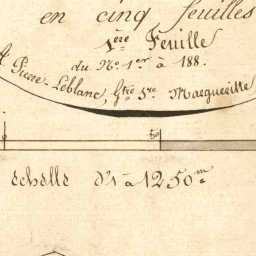 en cinq feuilles
1ère Feuille
du No. 1er à 188.
Pierre-Leblanc, Ste Marguerite
50
echelle d'1 à 1250m